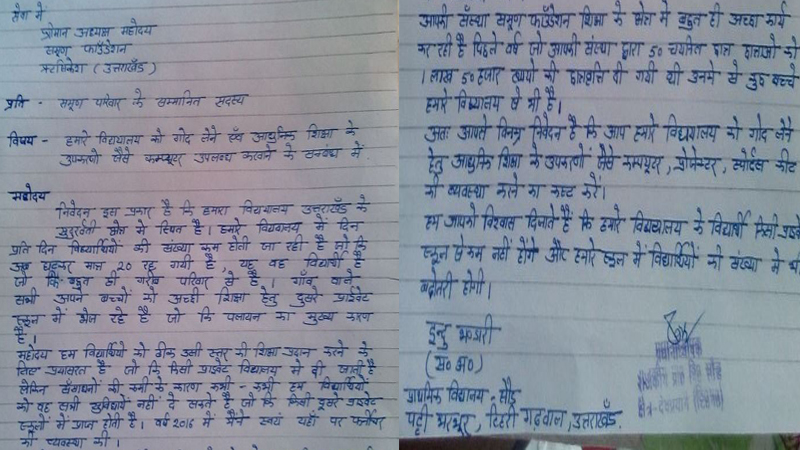 सेवा में
श्रीमान अध्यक्ष महोदय
समूण फाउँडेशन
ऋषिकेश (उत्तराखँड)
प्रति - समूण परिवार के सम्मानित सदस्य
विषय - हमारे विद्यालय को गोद लेने एँव आधुनिक शिक्षा के
उपकरणो जैसे कम्प्यूटर उपलब्ध करवाने के सम्बंध में.
महोदय
निवेदन इस प्रकार है कि हमारा विद्यालय उत्तराखँड के
सुदुरवर्ती क्षेत्र में स्थित है। हमारे विद्यालय में दिन
प्रति दिन विद्यार्थियों की संख्या कम होती जा रही है जो कि
अब घटकर मात्र 20 रह गयी है, यह वह विद्यार्थी है
जो कि बहुत ही गरीब परिवार से है। गाँव वाले
सभी अपने बच्चों को अच्छी शिक्षा हेतु दुसरे प्राईवेट
स्कूल में भेज रहे है जो कि पलायन का मुख्य कारण
है।
महोदय हम विद्यार्थियो को ठीक उसी स्तर की शिक्षा प्रदान करने के
लिए प्रयासरत है जो कि किसी प्राइवेट विद्यालय में दी जाती है
लेकिन सँसाधनों की कमी के कारण कभी - कभी हम विद्यार्थियों
को वह सभी सुविधायें नहीं दे सकते है जो कि किसी दुसरे प्राइवेट
स्कूलों में प्राप्त होती है। वर्ष 2016 में मैंने स्वयं यहाँ पर फर्नीचर
की व्यवस्था की।
आपकी सँस्था समूण फाउँडेशन शिक्षा के क्षेत्र में बहुत ही अच्छा कार्य
कर रही है पिछले वर्ष जो आपकी संस्था द्वारा 50 चयनित छात्र छात्राओ को
1 लाख 50 हजार रुपयो की छात्रवृत्ति दी गयी थी उनमे से कुछ बच्चे
हमारे विद्यालय से भी है।
अतः आपसे विनम्र निवेदन है कि आप हमारे विद्यालय को गोद लेने
हेतु आधुनिक शिक्षा के उपकरणों जैसे कम्प्यूटर, प्रोजेक्टर, स्पोर्टस कीट
की व्यवस्था करने का कष्ट करें।
हम आपको विश्वास दिलाते हैं कि हमारे विद्यालय के विद्यार्थी किसी प्राइवेट
स्कूल से कम नहीं होंगे और हमारे स्कूल में विद्यार्थियों की संख्या में भी
बढ़ोतरी होगी।
इन्दु
(स० अ०)
प्राथमिक विद्यालय - सौड़
पट्टी भरपूर, टिहरी गढ़वाल, उत्तराखँड.